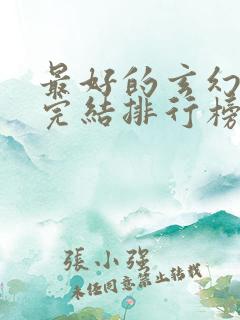 最好的玄幻
完結排行榜
張小强
未经同意禁止转载